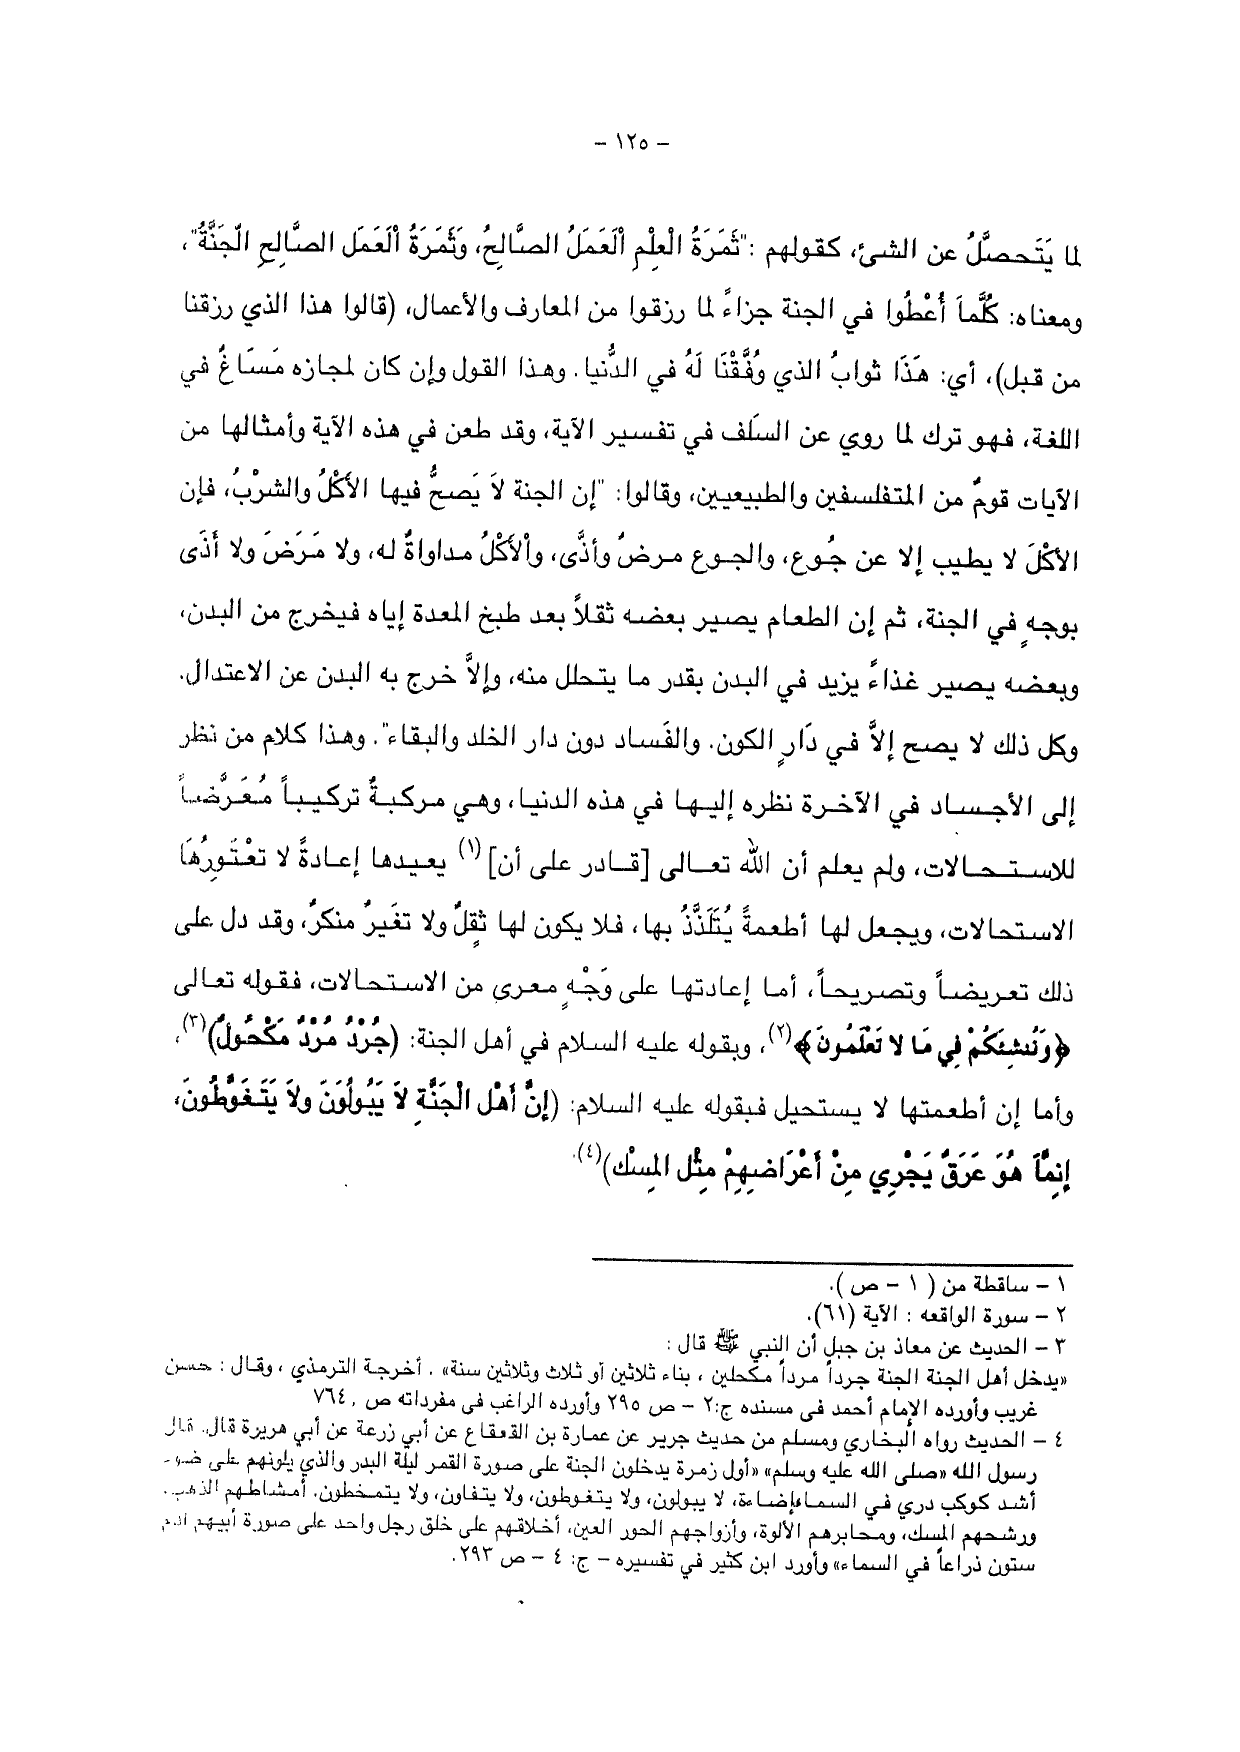 - ١٢٥ -
لما يَتَحصَّلُ عن الشئ، كقولهم :"ثَمَرَةُ الْعِلْمِ ألْعَمَلُ الصَّالِحُ، وَثَمَرَةُ ألْعَمَل الصَّالِحِ الْجَنَّةُ"،
ومعناه: كُلَّمَا أُعْطُوا في الجنة جزاءً لما رزقوا من المعارف والأعمال، (قالوا هذا الذي رزقنا
من قبل)، أي: هَذَا ثوابُ الذي وُفِّقْنَا لَهُ في الدُّنيا. وهذا القول وإن كان لمجازه مَسَاغٌ في
اللغة، فهو ترك لما روي عن السلَف في تفسير الآية، وقد طعن في هذه الآية وأمثالها من
الآيات قومٌ من المتفلسفين والطبيعيين، وقالوا: "إن الجنة لاَ يَصحُّ فيها الأكْلُ والشرْبُ، فإن
الأكْلَ لا يطيب إلا عن جُوع، والجوع مرضٌ وأذًى، وألأكْلُ مداواةٌ له، ولا مَرَضَ ولا أَذَى
بوجهٍ في الجنة، ثم إن الطعام يصير بعضه ثقلاً بعد طبخ المعدة إياه فيخرج من البدن،
وبعضه يصير غذاءً يزيد في البدن بقدر ما يتحلل منه، وإلاَّ خرج به البدن عن الاعتدال.
وكل ذلك لا يصح إلاَّ في دَارِ الكون. والفَساد دون دار الخلد والبقاء". وهذا كلام من نظر
إلى الأجساد في الآخرة نظره إليها في هذه الدنيا، وهي مركبةٌ تركيباً مُعَرَّضاً
للاستحالات، ولم يعلم أن الله تعالى [قادر على أن](١) يعيدها إعادةً لا تعْتَورُهَا
الاستحالات، ويجعل لها أطعمةً يُتَلَذَّذُ بها، فلا يكون لها ثِقلٌ ولا تغَيرٌ منكرٌ، وقد دل على
ذلك تعريضاً وتصريحاً، أما إعادتها على وَجْهٍ معرى من الاستحالات، فقوله تعالى
﴿وَنُنشِئَكُمْ فِي مَا لا تَعْلَمُونَ﴾(٢)، وبقوله عليه السلام في أهل الجنة: (جُرْدٌ مُرْدٌ مَكْحُولٌ)(٣)،
وأما إن أطعمتها لا يستحيل فبقوله عليه السلام: (إنَّ أَهْل الْجَنَّةِ لاَ يَبُولُونَ ولاَ يَتَغَوَّطُونَ،
إنِمَّاَ هُوَ عَرَقٌ يَجْرِي مِنْ أعْرَاضِهِمْ مِثْل المِسْك)(٤).
١ - ساقطة من ( ١ - ص ).
٢ - سورة الواقعه : الآية (٦١).
٣ - الحديث عن معاذ بن جبل أن النبي ﷺ قال :
«يدخل أهل الجنة الجنة جرداً مرداً مكحلين ، بناء ثلاثين أو ثلاث وثلاثين سنة» . أخرجة الترمذي ، وقال : حسن
غريب وأورده الإمام أحمد فى مسنده ج:٢ - ص ٢٩٥ وأورده الراغب فى مفرداته ص ,٧٦٤
٤ - الحديث رواه البخاري ومسلم من حديث جرير عن عمارة بن القعقاع عن أبي زرعة عن أبي هريرة قال. قال
رسول الله «صلى الله عليه وسلم» «أول زمرة يدخلون الجنة على صورة القمر ليلة البدر والذي يلونهم على
أشد كوكب دري في السماءإضاءة، لا يبولون، ولا يتغوطون، ولا يتفاون، ولا يتمخطون. أمشاطهم الذهب.
ورشحهم المسك، ومحابرهم الألوة، وأزواجهم الحور العين، أخلاقهم على خلق رجل واحد على صورة أبيهم آدم
ستون ذراعاً في السماء» وأورد ابن كثير في تفسيره - ج: ٤ - ص ٢٩٣.